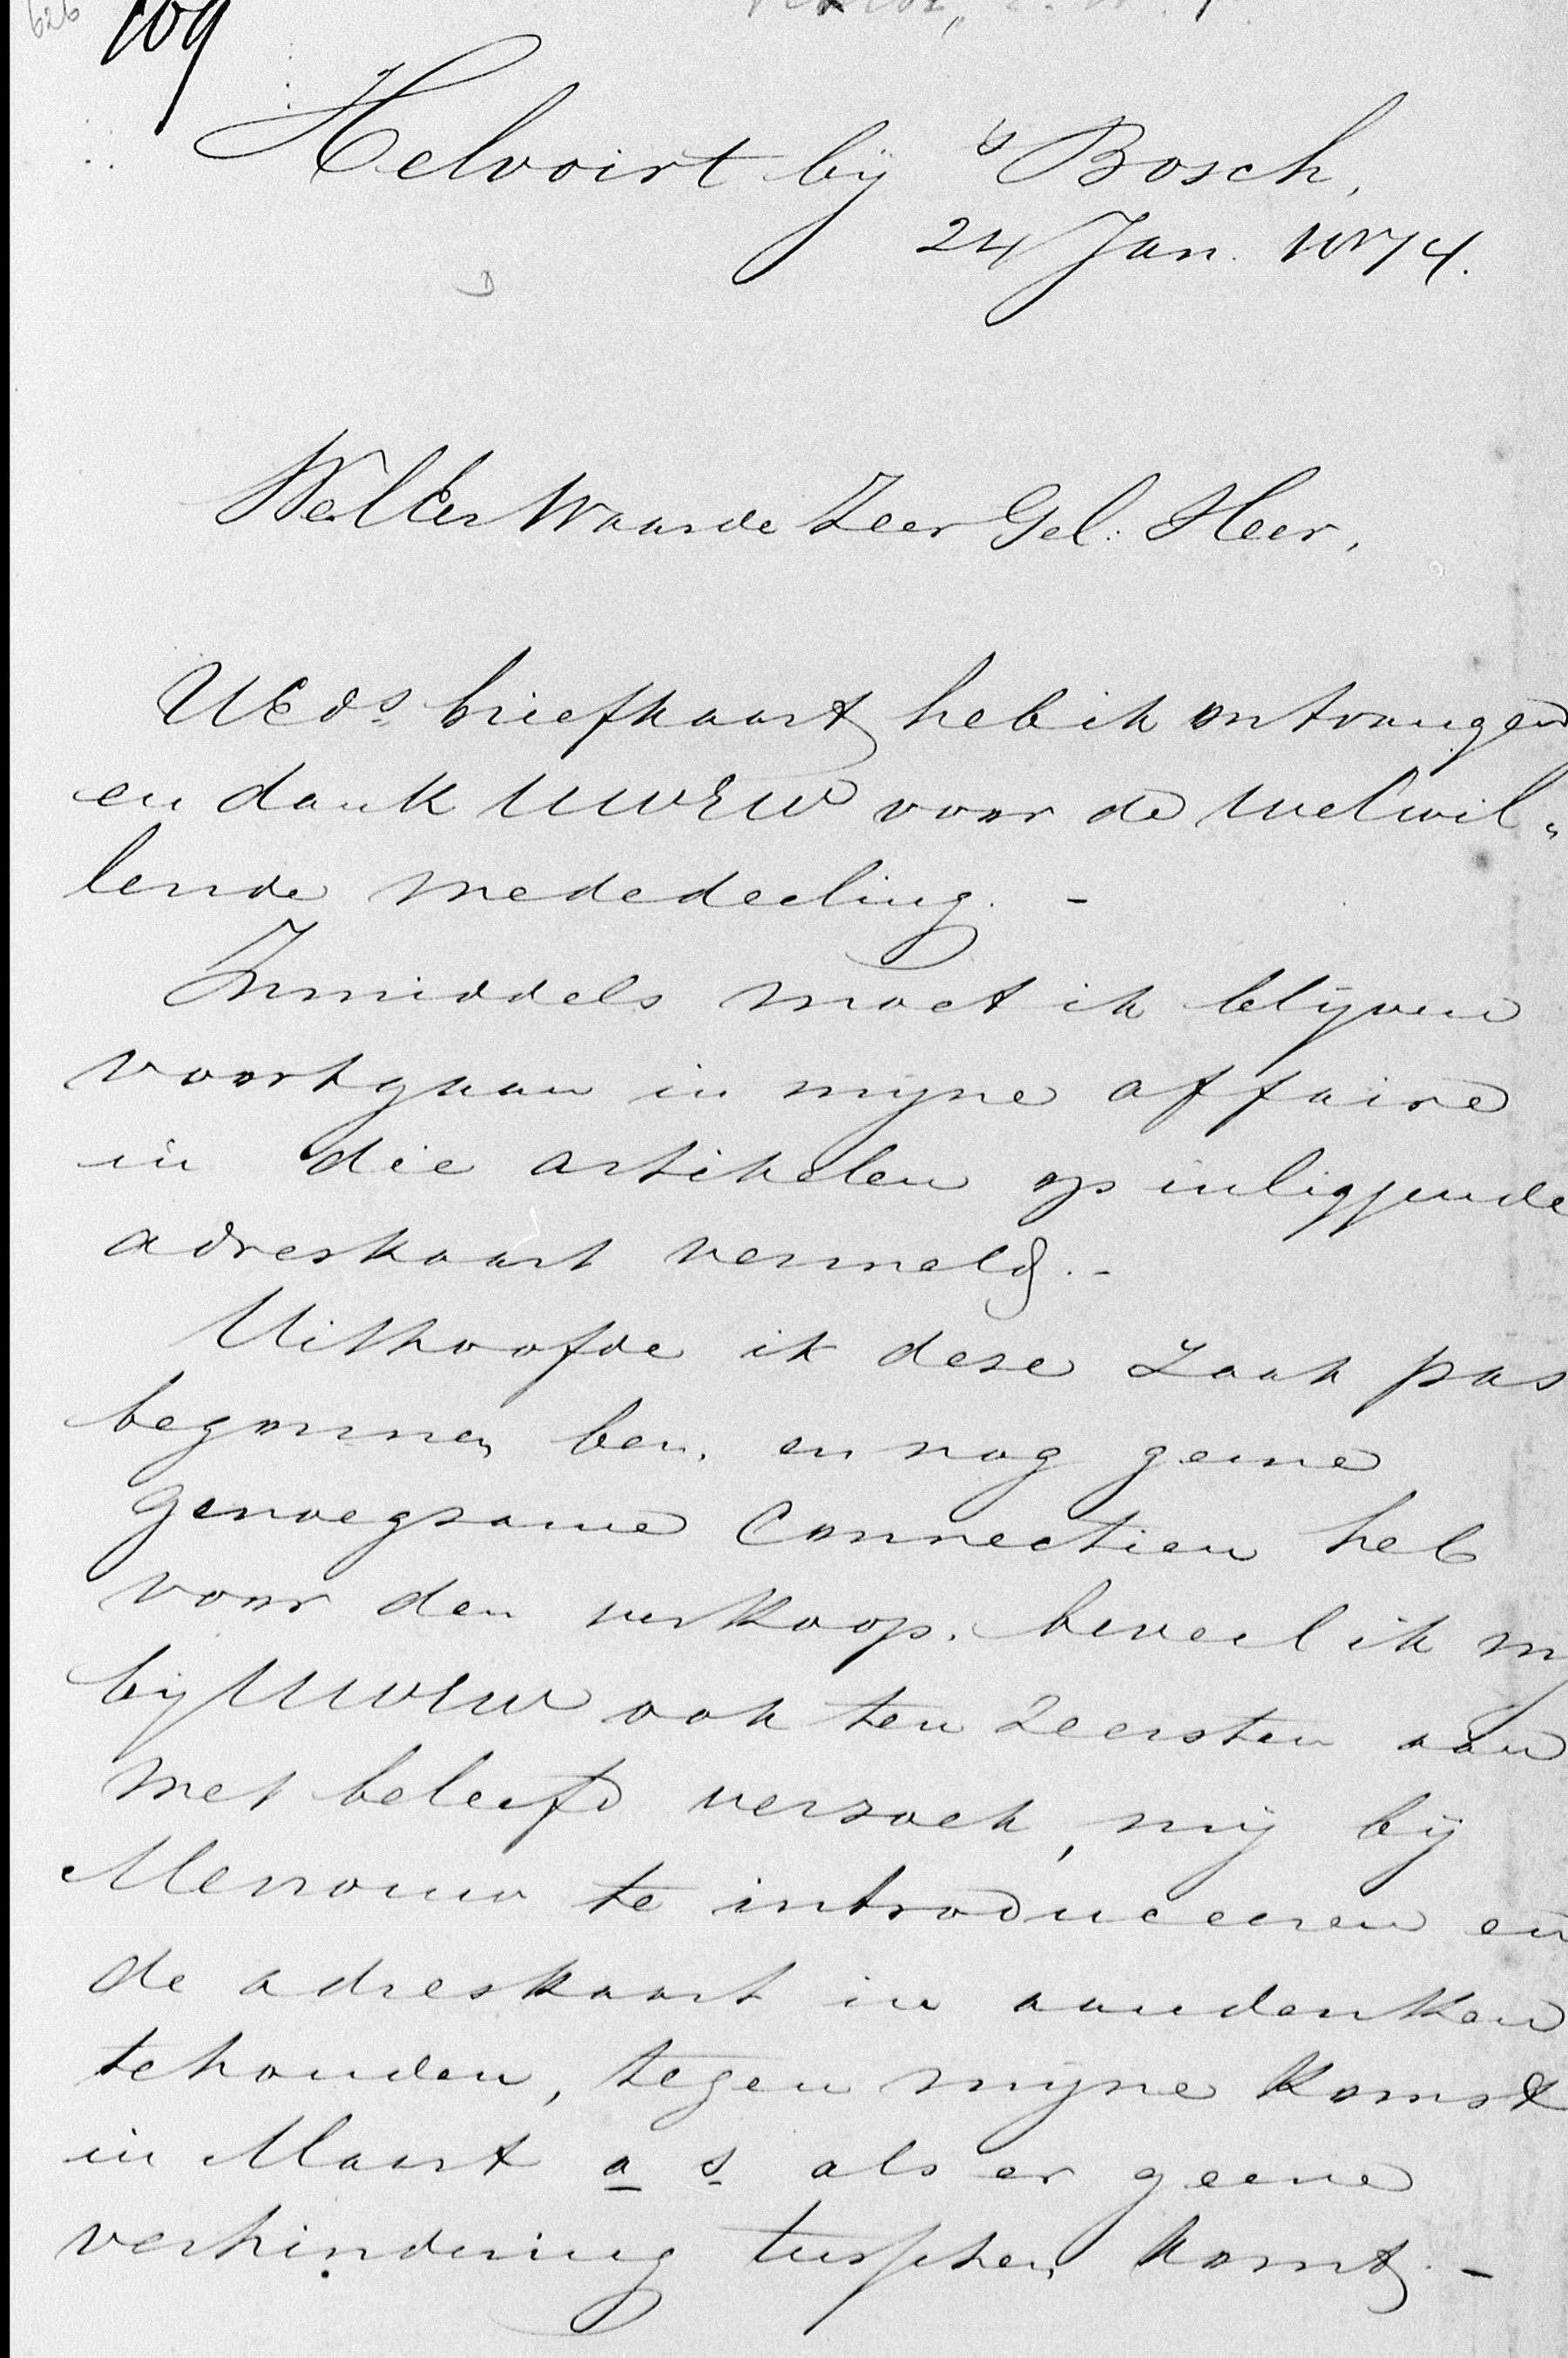 626 109
Helvoirt bij 's Bosch,
24 Jan. 1874.
WelEerWaarde Zeer Gel: Heer,
UEds briefkaart heb ik ontvangen
en dank UWEW voor de welwil„
lende mededeeling. -
Inmiddels moet ik blijven
voortgaan in mijne affaire
in die artikelen op inliggende
adreskaart vermeld. -
Uithoofde ik deze zaak pas
begonnen ben, en nog geene
genoegzame Connectien heb
voor den verkoop, beveel ik mij
bij UWEW ook ten Zeersten aan
met beleefd verzoek, mij bij
Mevrouw te introduceeren en
de adreskaart in aandenken
te houden, tegen mijne Komst
in Maart a s als er geene
verhindering tusschen komt. -